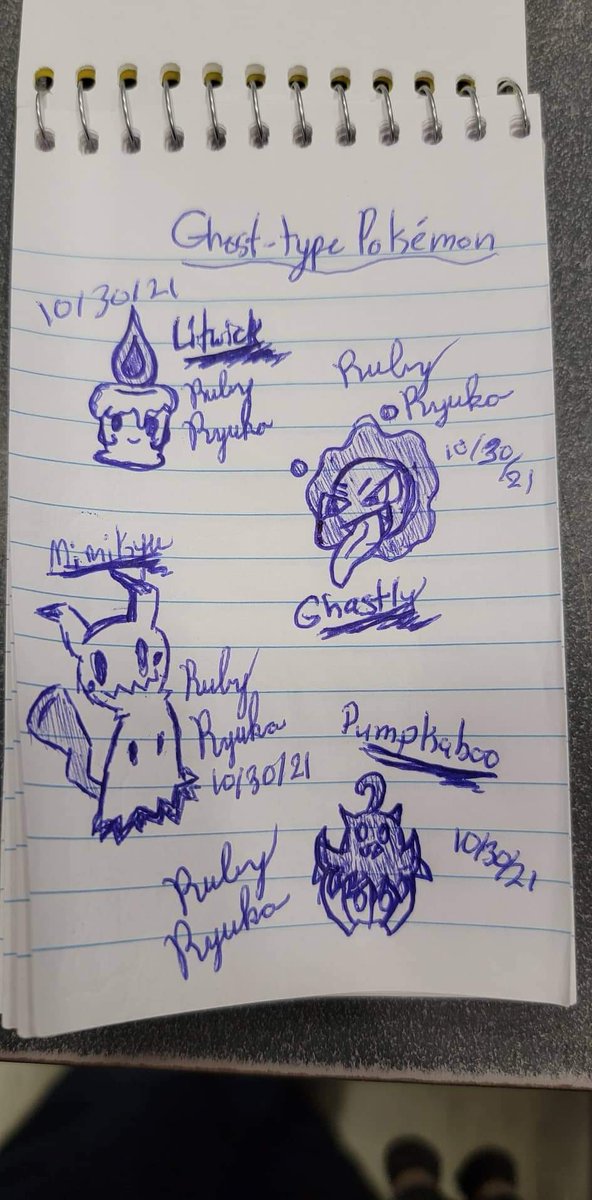 Ghost-type Pokémon
10/30/21
Litwick
Ruby
Ryuko
Ruby
Ryuko
10/30/21
Ghastly
Mimikyu
Ruby
Ryuko
10/30/21
Pumpkaboo
10/30/21
Ruby
Ryuko